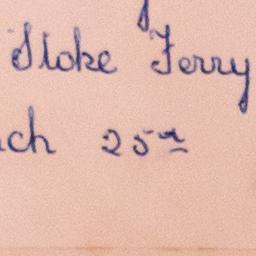 Stoke Ferry
ch 25th